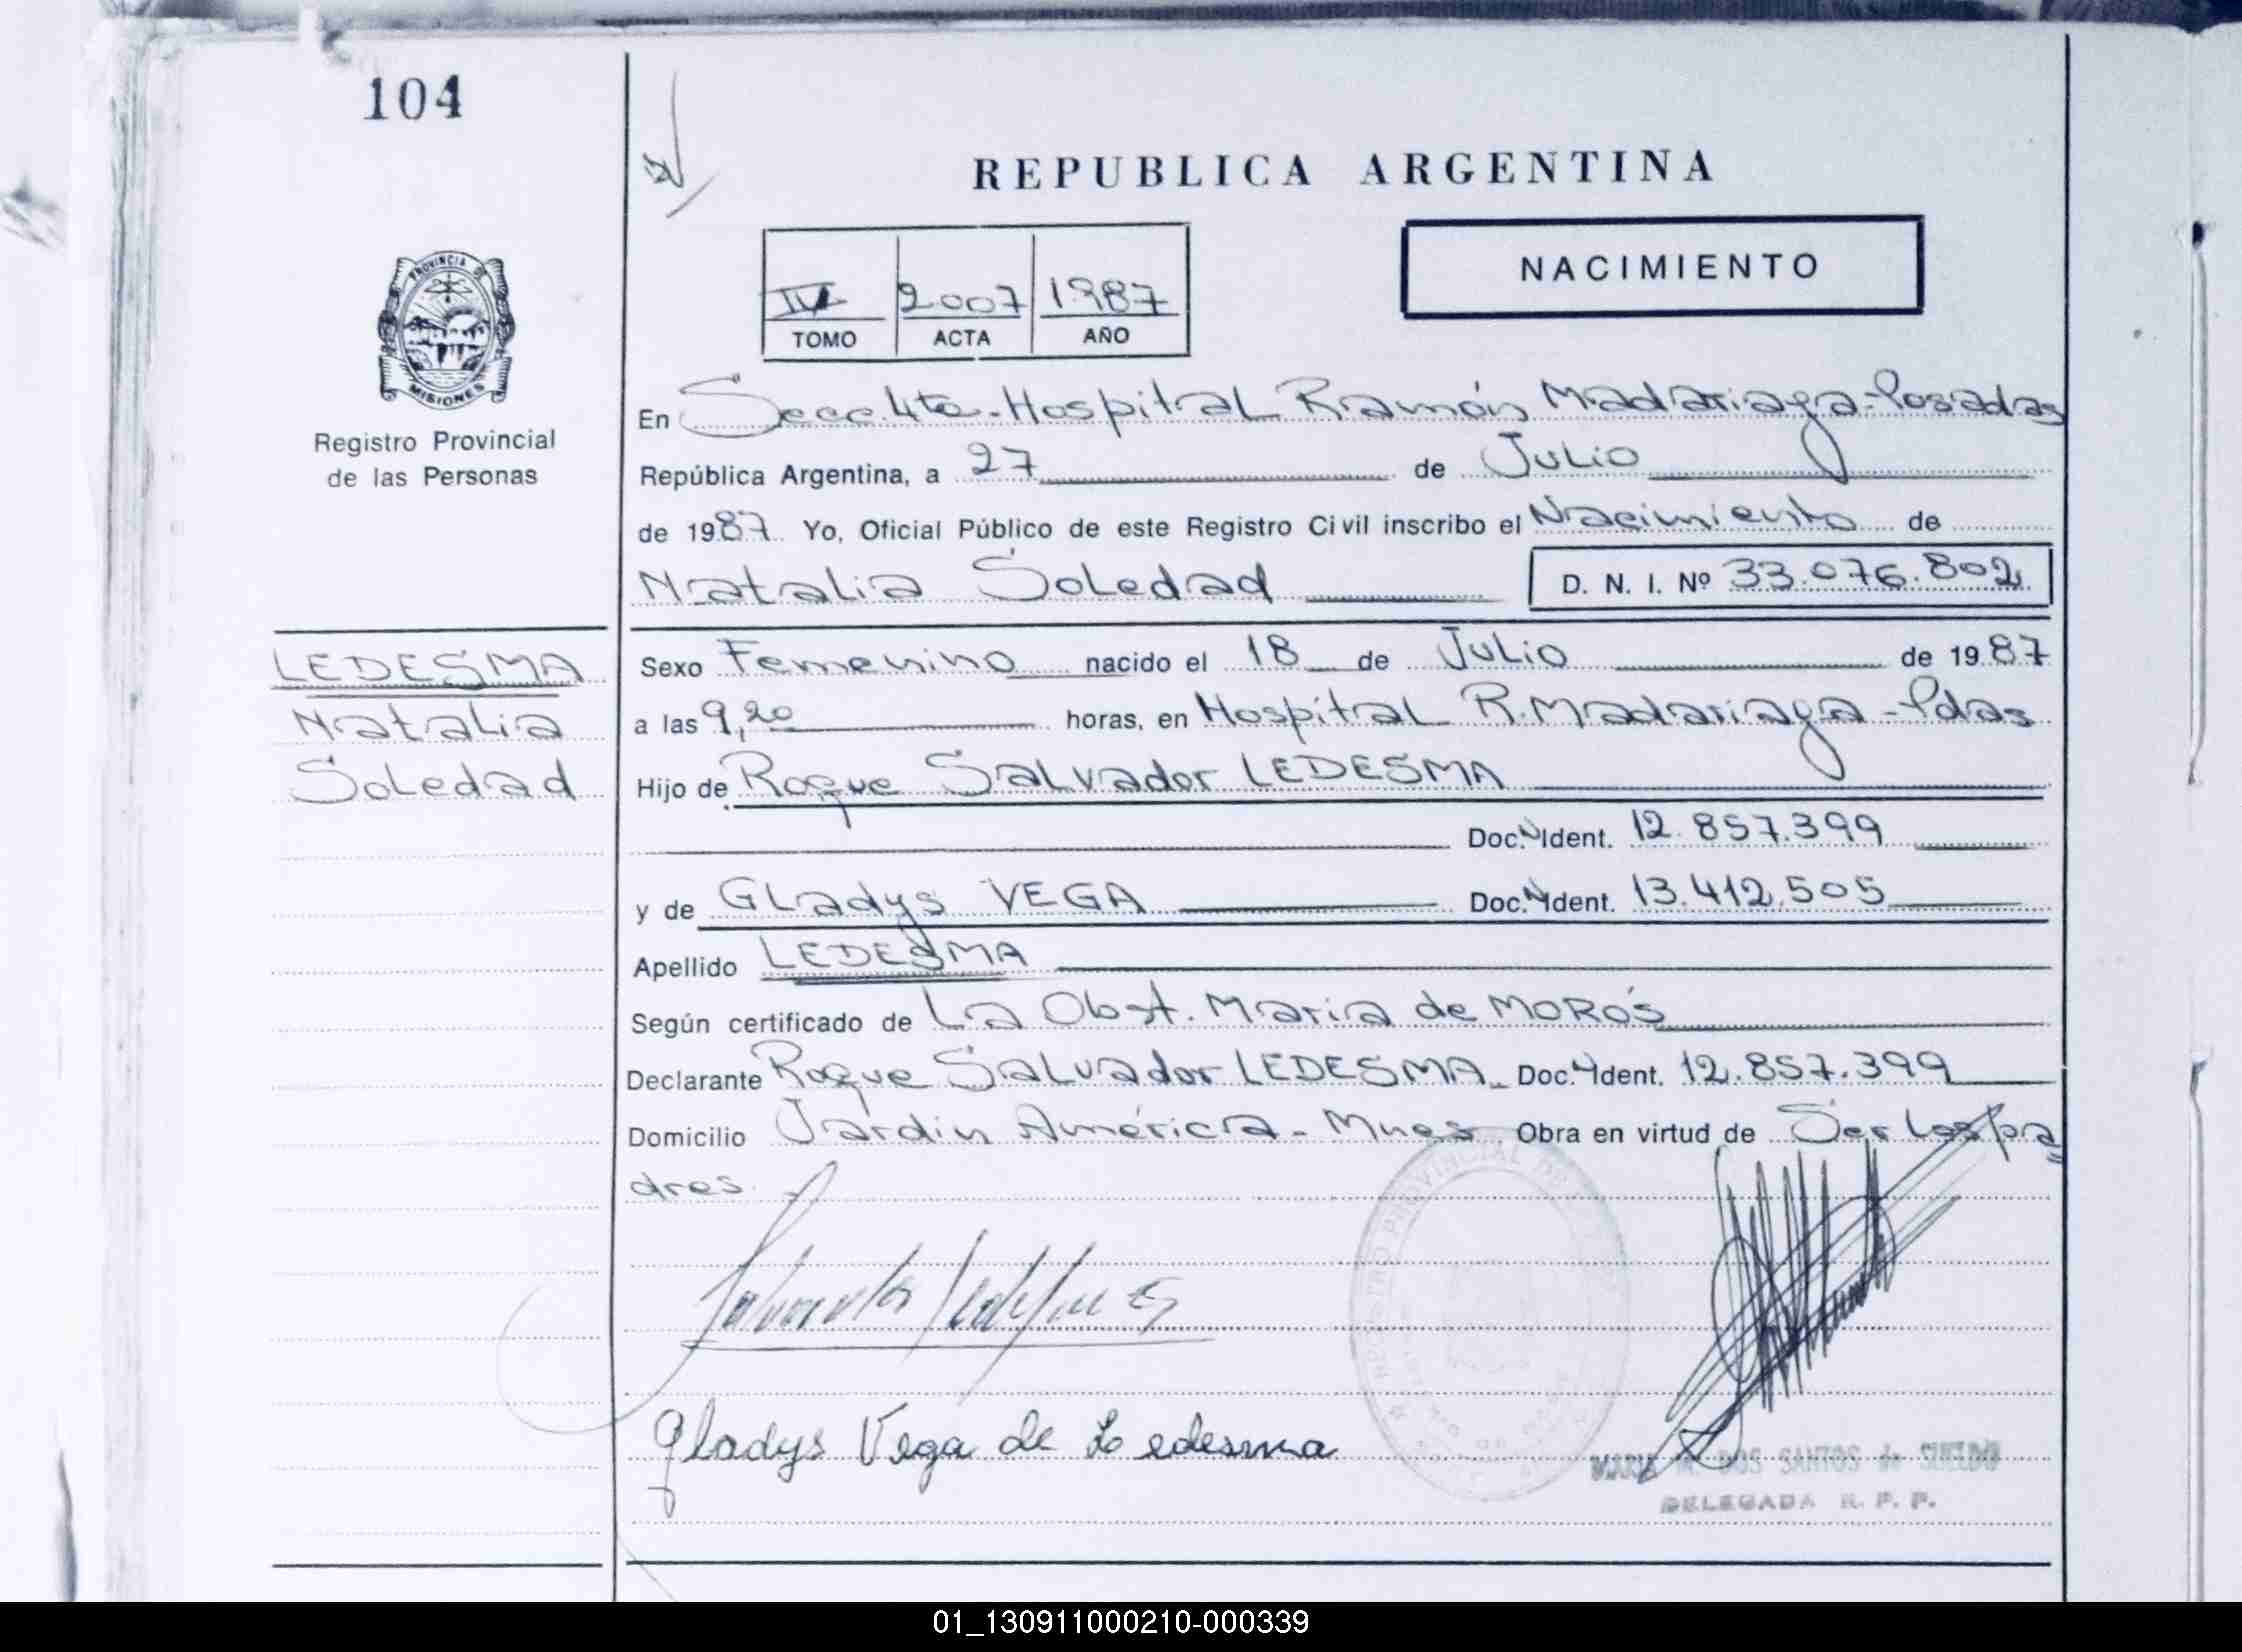 104
REPUBLICA ARGENTINA
PROVINCIA DE
MISIONES
Registro Provincial
de las Personas
2007 1987
TOMO ACTA AÑO
NACIMIENTO
En Secc 4ta - Hospital Ramón Madariaga - Posadas
República Argentina, a 27 de Julio
de 1987 Yo, Oficial Público de este Registro Civil inscribo el Nacimiento de
Natalia Soledad D. N. I. Nº 33.076.802
LEDESMA
Natalia
Soledad
Sexo Femenino nacido el 18 de Julio de 1987
a las 9,20 horas, en Hospital R. Madariaga - Pdas
Hijo de Roque Salvador LEDESMA
Doc. Ident. 12.857.399
y de Gladys VEGA Doc. Ident. 13.412.505
Apellido LEDESMA
Según certificado de La Obst. Maria de MORÓS
Declarante Roque Salvador LEDESMA Doc. Ident. 12.857.399
Domicilio Jardin América - Mnes Obra en virtud de Ser los pa
dres.
REGISTRO PROVINCIAL DE
Salvador Ledesma
Gladys Vega de Ledesma
DOS SANTOS de
DELEGADA R. P. P.
01_130911000210-000339